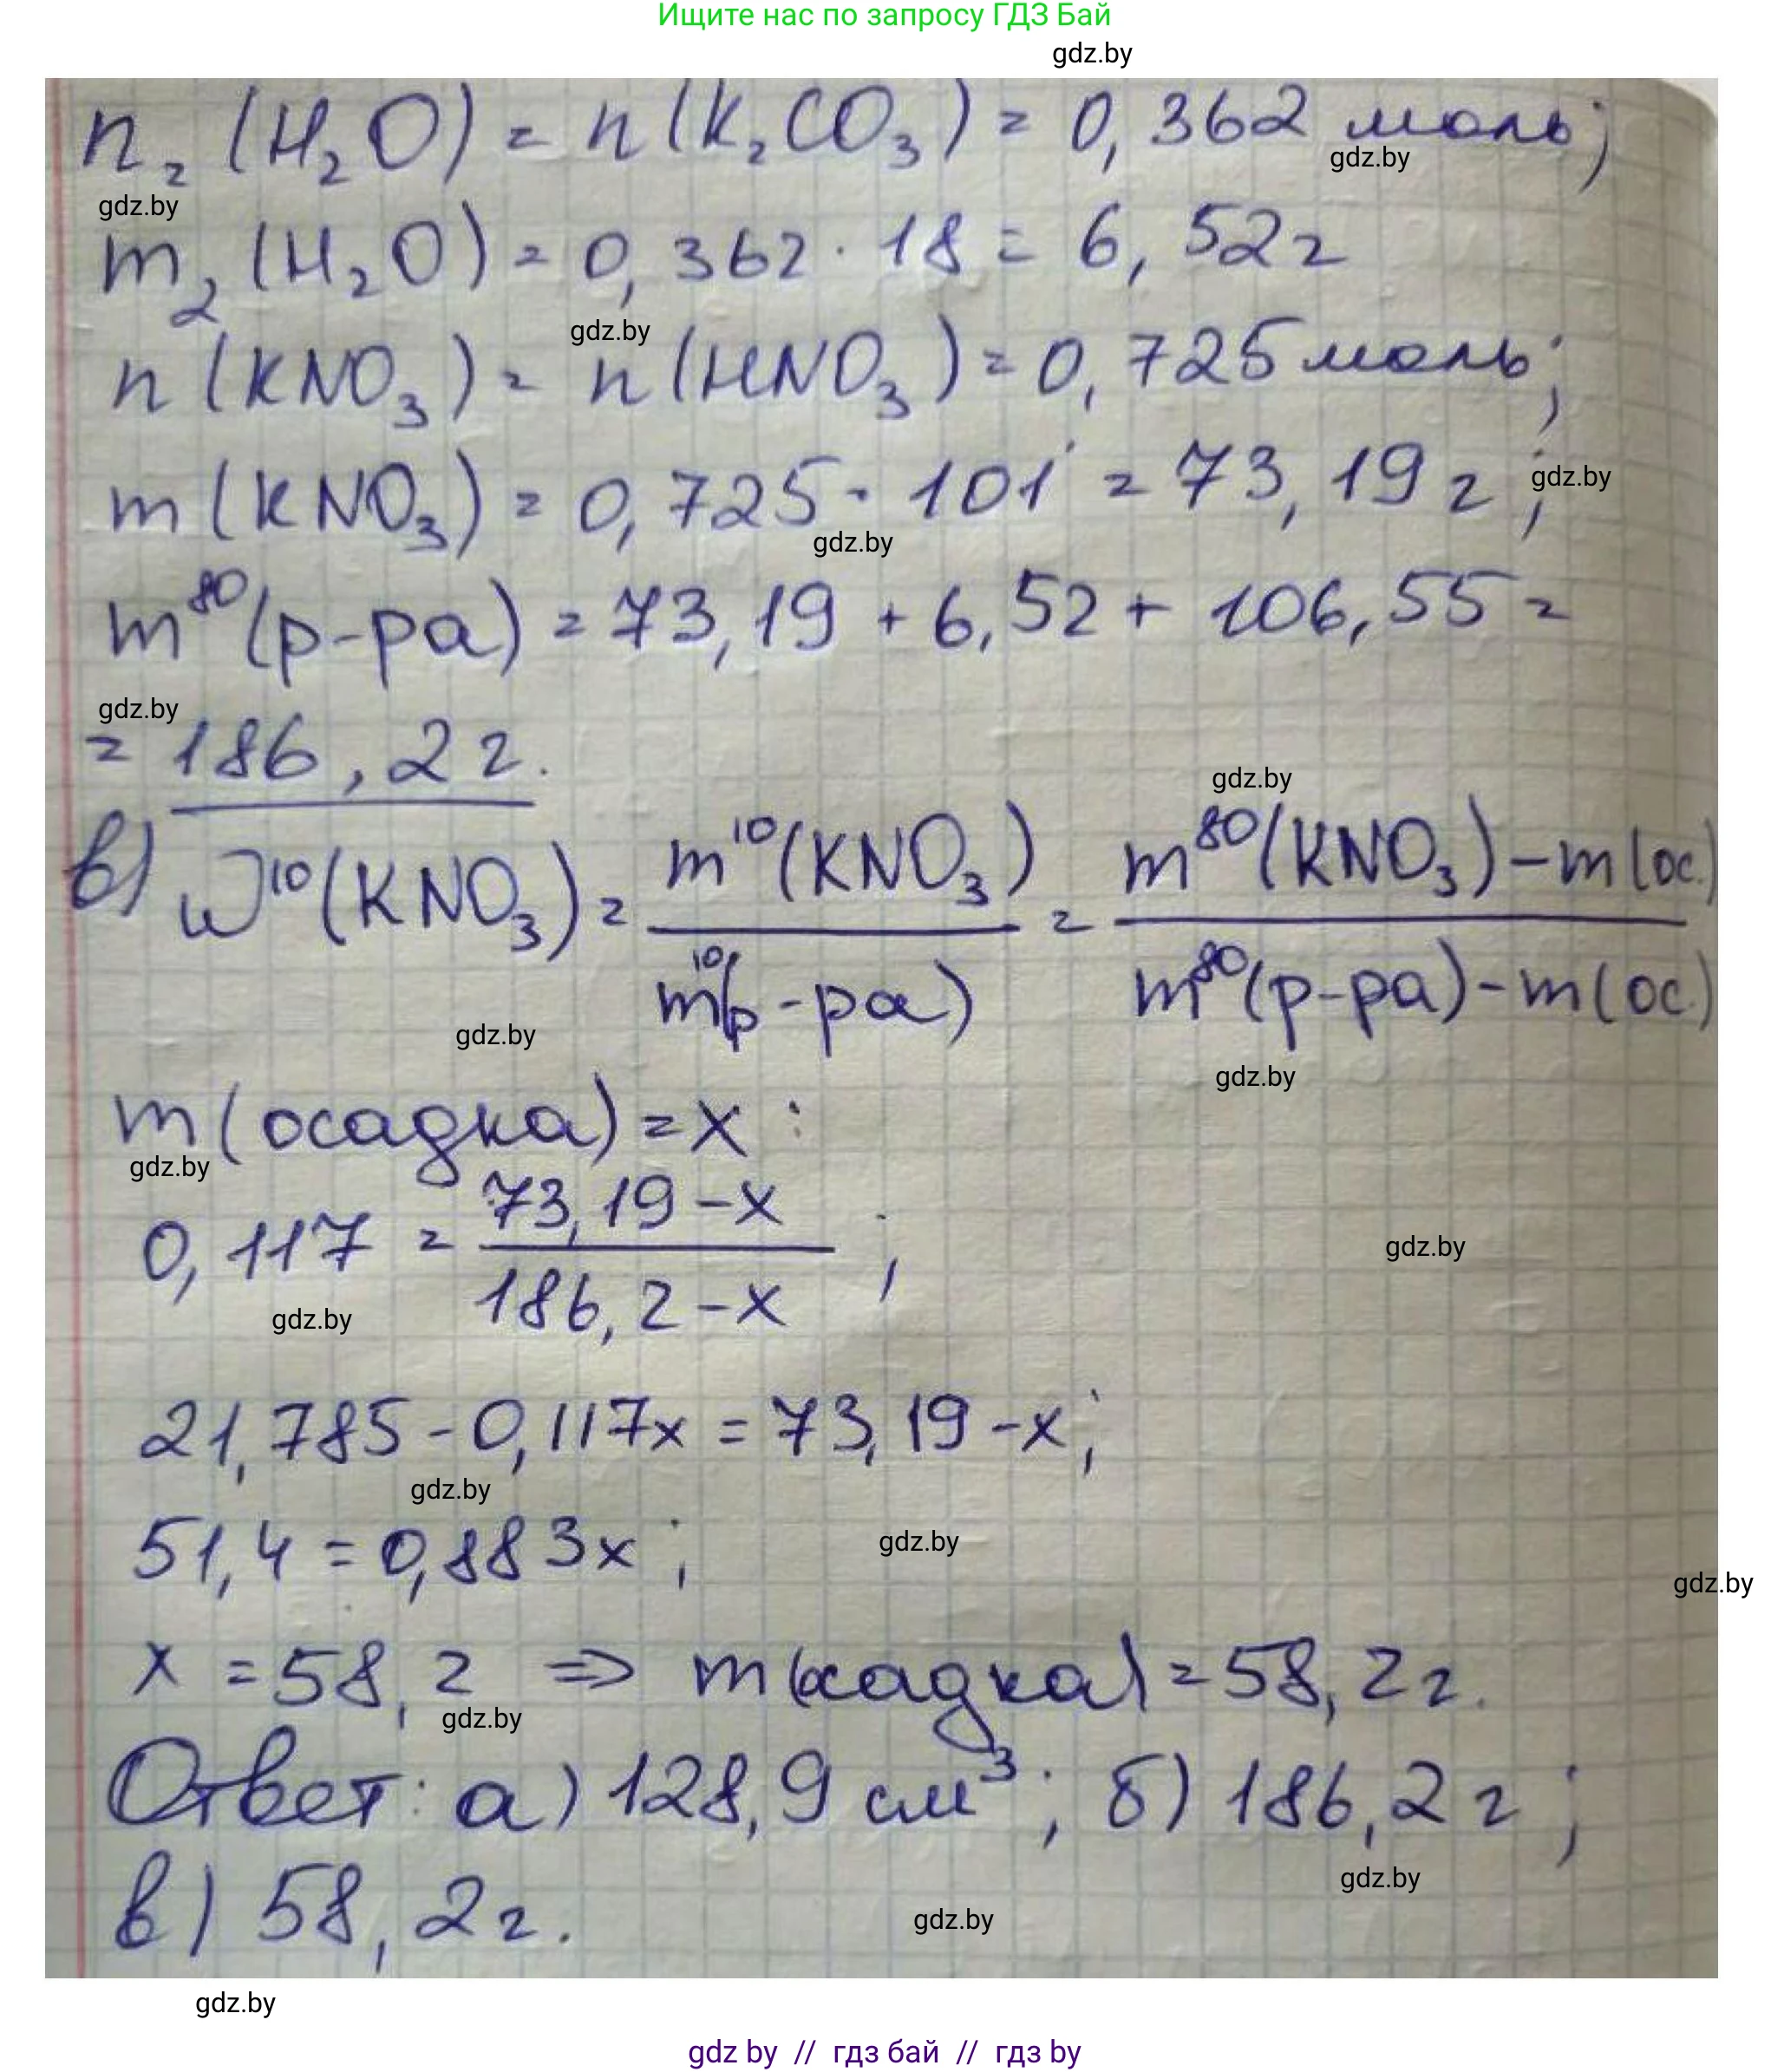 Ищите нас по запросу ГДЗ Бай
gdz.by
n₂(H₂O) = n(K₂CO₃) = 0,362 моль;
gdz.by
gdz.by
m₂(H₂O) = 0,362 · 18 = 6,52 г
gdz.by
n(KNO₃) = n(HNO₃) = 0,725 моль;
m(KNO₃) = 0,725 · 101 = 73,19 г;
gdz.by
gdz.by
m⁸⁰(р-ра) = 73,19 + 6,52 + 106,55 =
gdz.by
= 186,2 г.
gdz.by
в) W¹⁰(KNO₃) = m¹⁰(KNO₃) / m¹⁰(р-ра) = m⁸⁰(KNO₃) - m(ос.) / m⁸⁰(р-ра) - m(ос.)
gdz.by
gdz.by
m(осадка) = x :
gdz.by
0,117 = 73,19 - x / 186,2 - x ;
gdz.by
gdz.by
21,785 - 0,117x = 73,19 - x;
gdz.by
51,4 = 0,883x ;
gdz.by
gdz.by
x = 58,2 ⇒ m(осадка) = 58,2 г.
gdz.by
Ответ: а) 128,9 см³; б) 186,2 г;
gdz.by
в) 58,2 г.
gdz.by
gdz.by
gdz by // гдз бай // гдз by